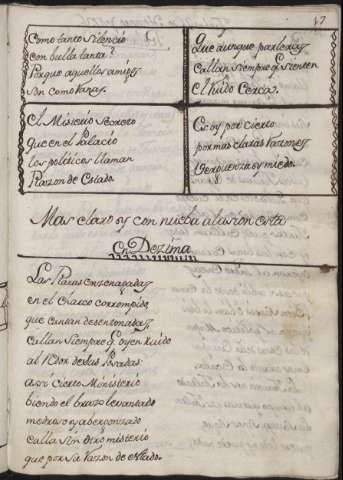 47
Como tanto Silencio
con bulla tanta?
Porque aquellos amigos
son como Ranas.
Que aunque parleras,
Callan siempre q. sienten
el Ruido Cerca.
El Misterio Secreto
que en el Palacio
los politicos llaman
Razon de Estado.
Es oy por cierto
por mas claras razones
Verguenza oy miedo.
Mas claro oy con nueba alusion esta
Dezima
Las Ranas encenagadas
en el Charco corrompido,
que cantan desentonadas,
callan siempre q. oyen Ruido
al de sus
assi cierto Ministerio
biendo el brazo levantado
medroso y abergonzado
calla sin otro misterio
que por su razon de estado.